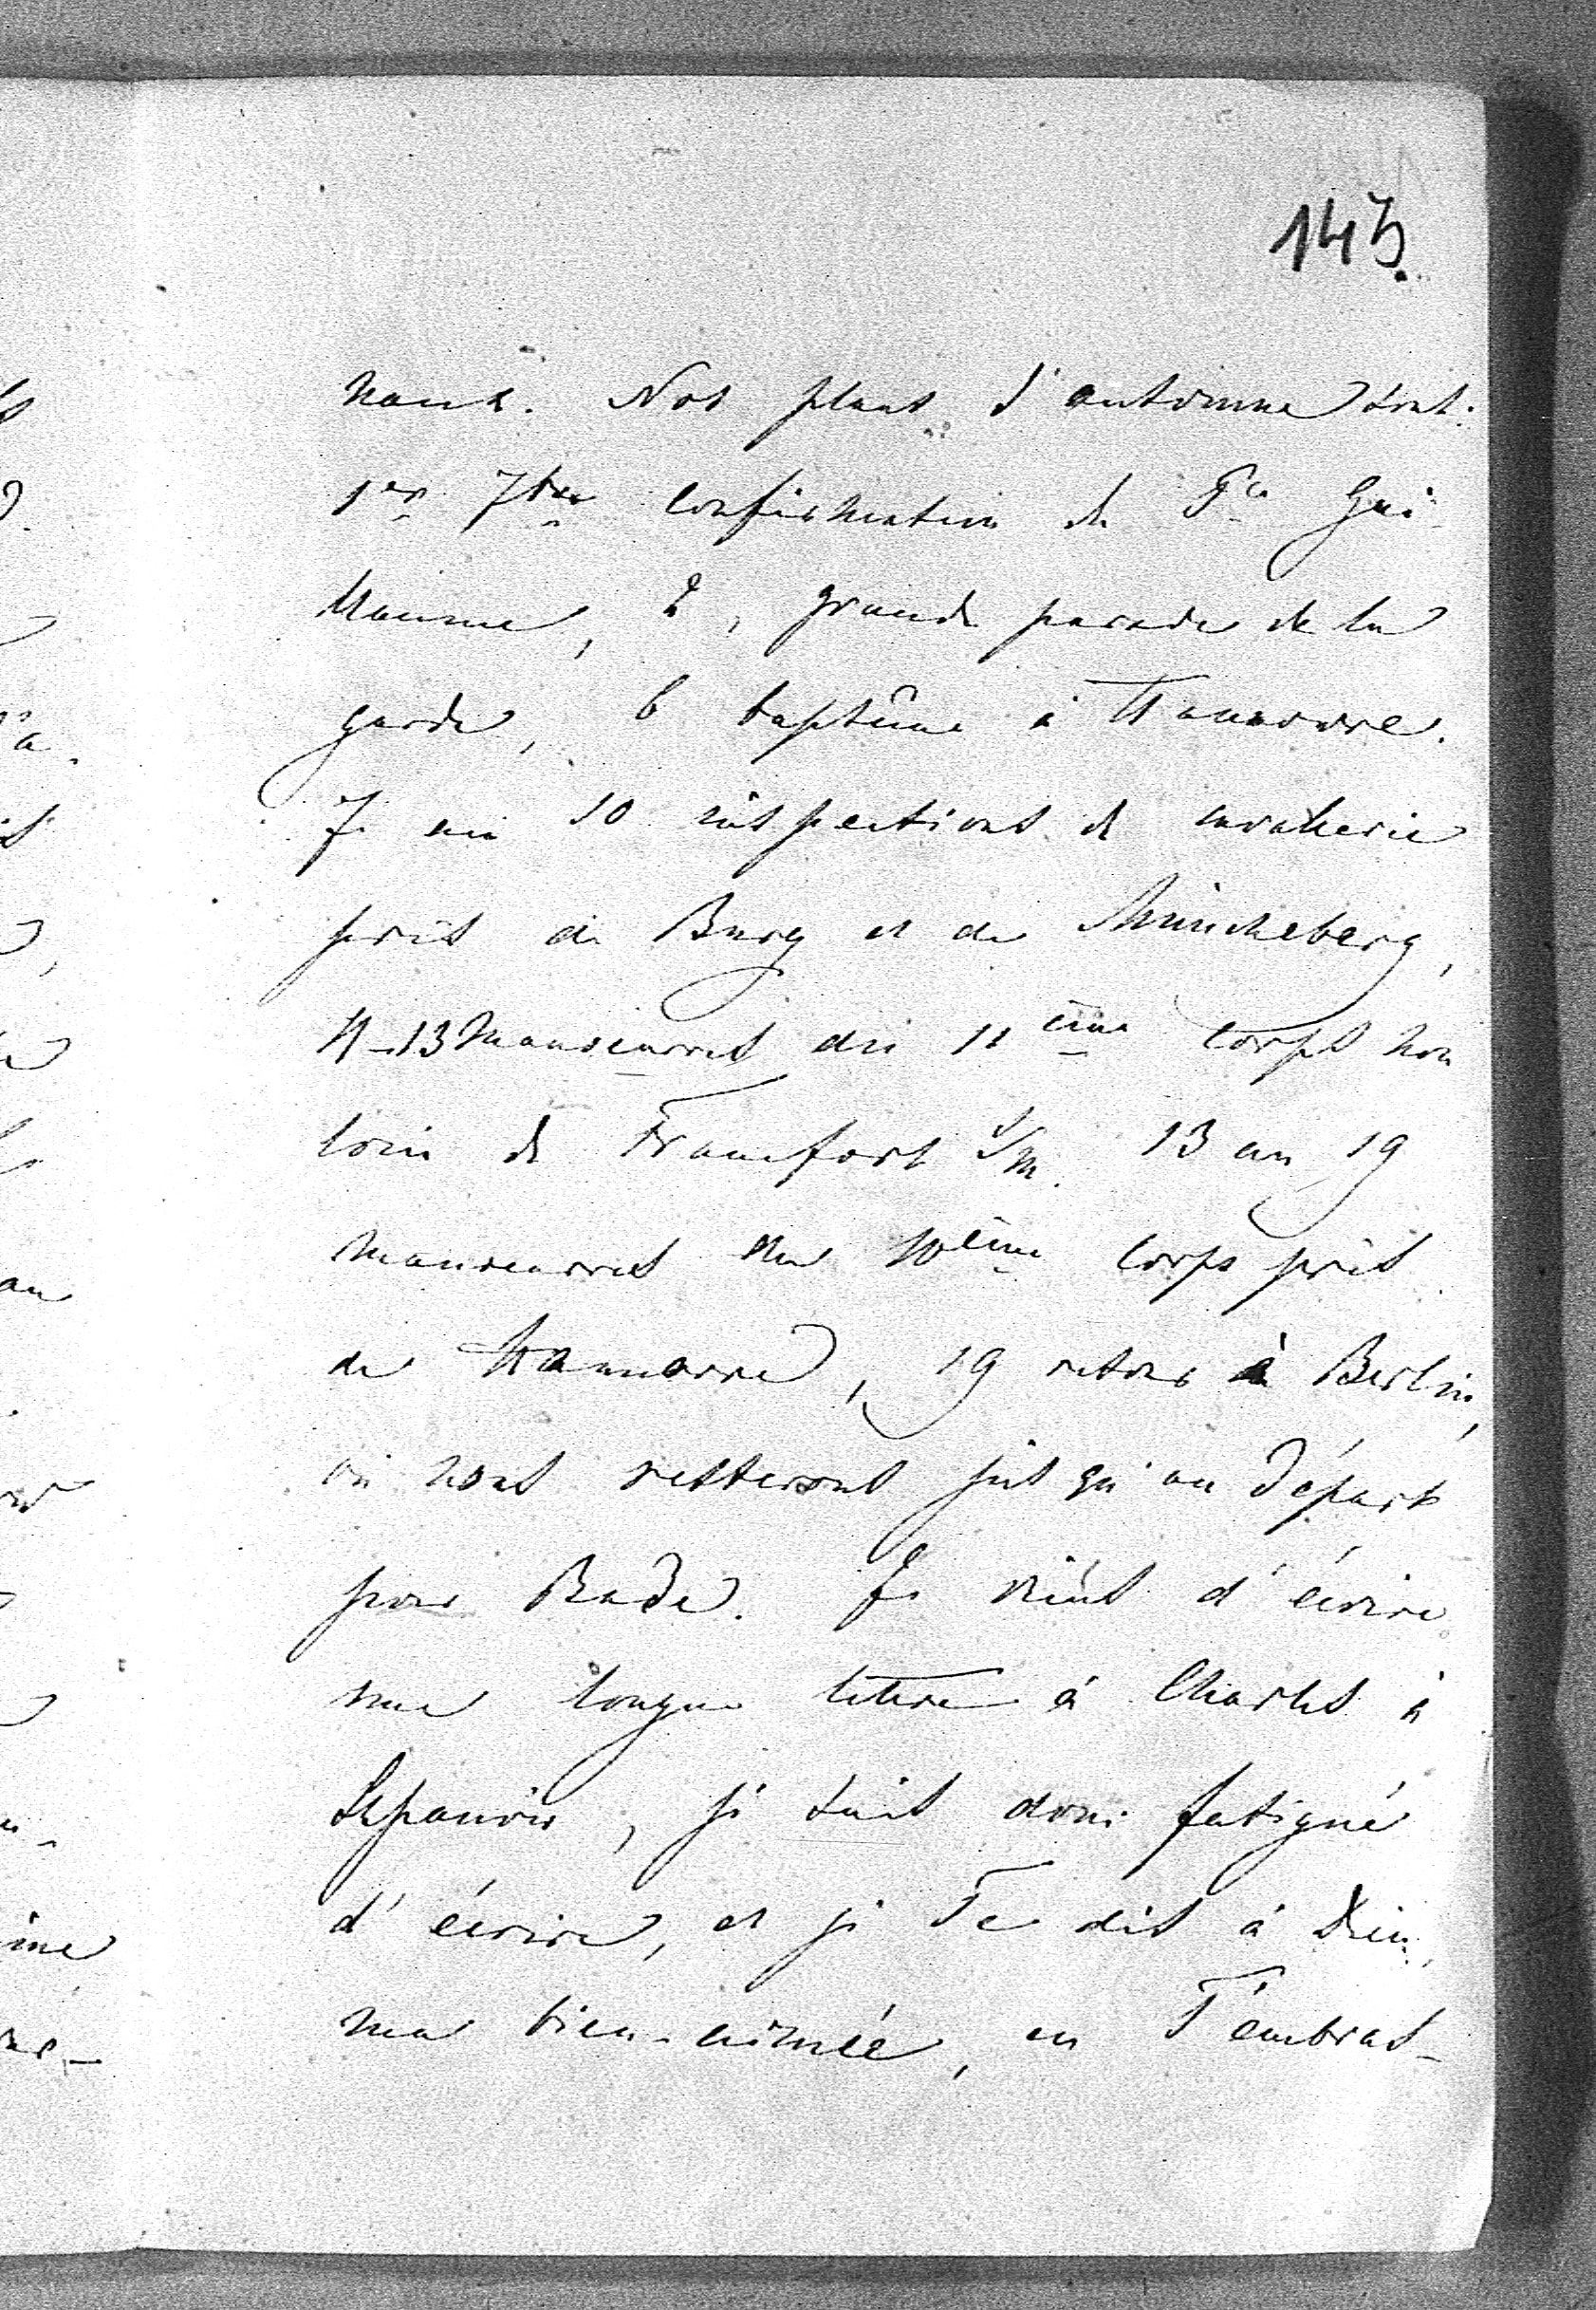 143.
Nos plans d'automne sont:
1er 7bre confirmation de Pce Gui-
2, grande parade de la
garde, 6 baptême à Hannovre.
Je ai 10 inspections de cavalerie
près de Burg et de Müncheberg,
11-13 manoeuvres du 11ème Corps non
loin de Francfort s/m. 13 au 19
manoeuvres du 10ème Corps près
de Hannovre, 19 retour à Berlin,
où nous resterons jusqu'au départ
pour Bade. Je viens d'écrire
une longue lettre à Charles à
je suis donc fatigué
d'écrire, et je Te dis à Dieu,
ma bien-aimée, en T'embras-